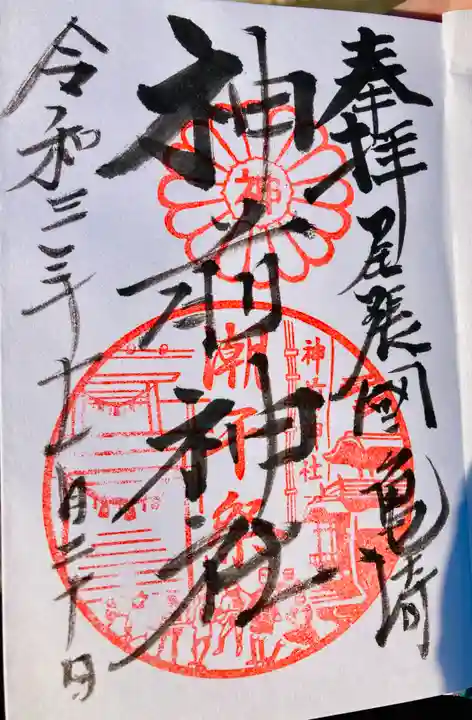 奉拝 尾張国亀崎
神前神社
令和三年十一月二十日
神
潮干祭
神前神社